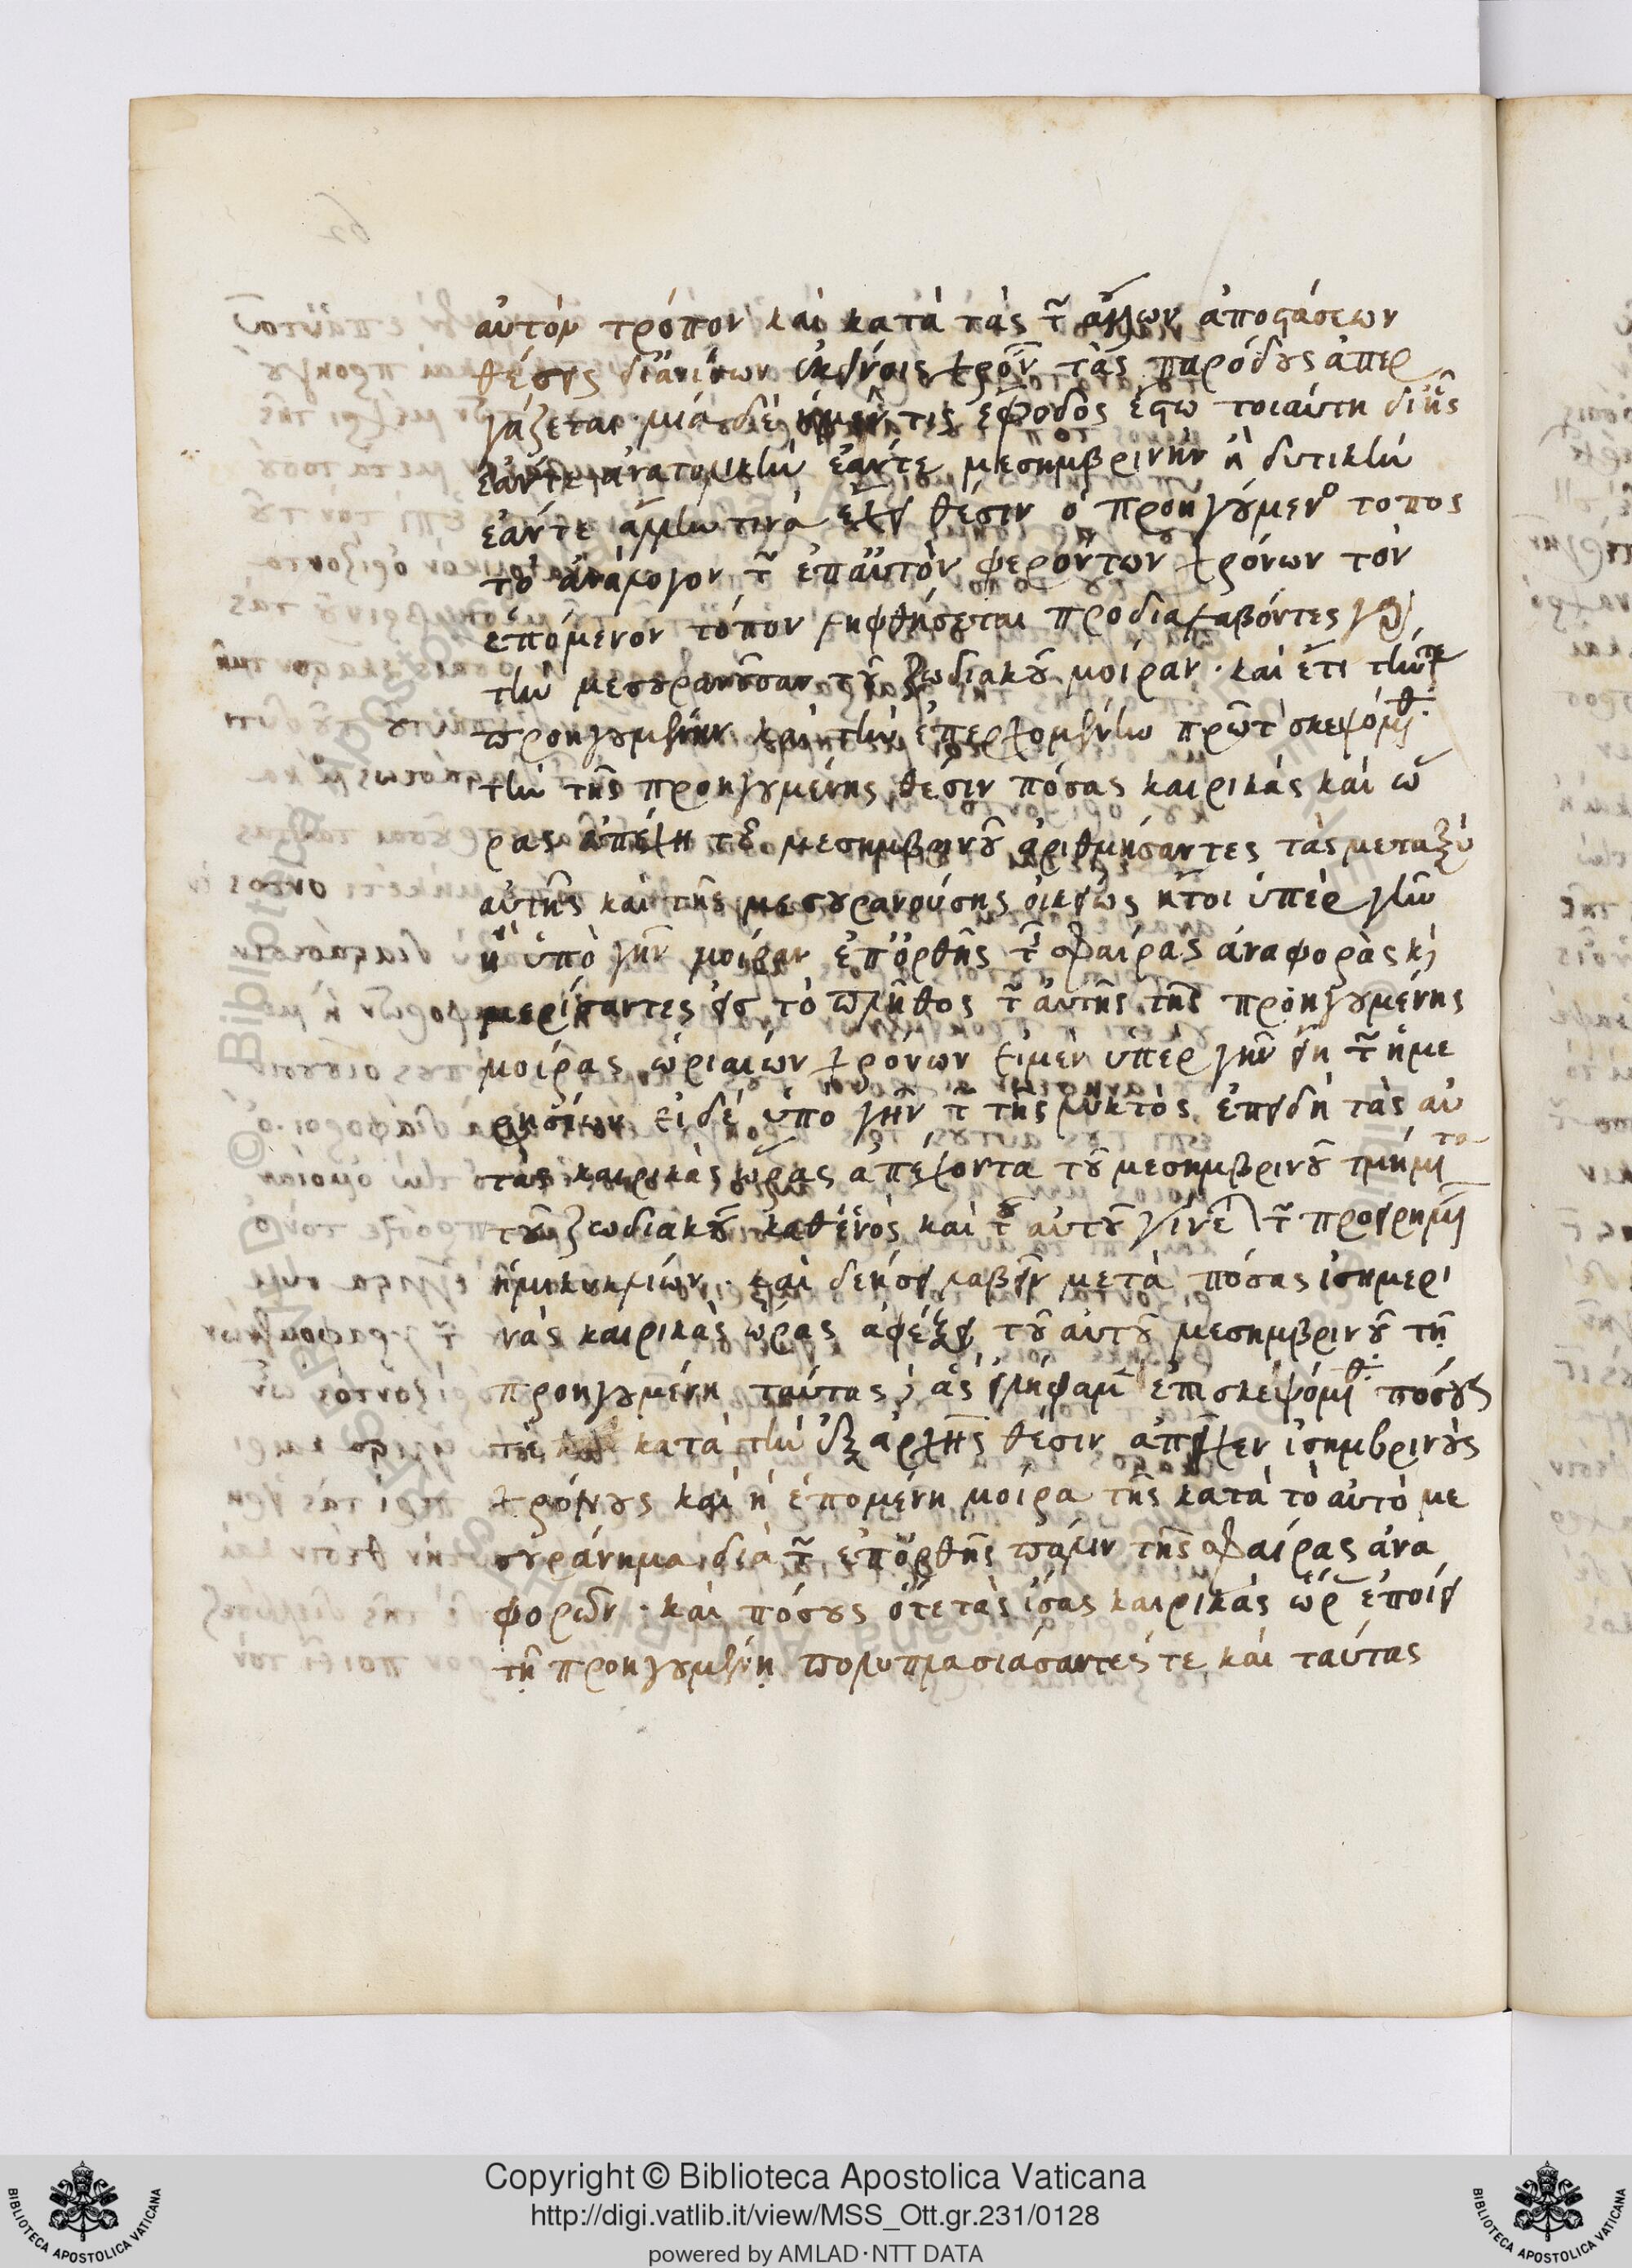 αὐτὸν τρόπον καὶ κατὰ τὰς τ͂ ἄλλων ἀποστάσεων
θέσεις δι' ἀνίσων ἐκείνοις χρόν τὰς παρόδους ἀπερ
γάζεται. μία δὲ ἡμῖν τις ἔφοδος ἔστω τοιαύτη δι' ἧς
ἐάντε ἀνατολικὴν ἐάντε μεσημβρινὴν ἢ δυτικὴν
ἐάντε ἄλλην τινὰ ἔχει θέσιν ὁ προηγούμενος τοπος
τὸ ἀνάλογον τ͂ ἐπ' αὐτὸν φερόντων χρόνων τὸν
ἑπόμενον τόπον ληφθήσεται προδιαλαβόντες γὰρ
τὴν μεσουρανοῦσαν τοῦ ζωδιακοῦ μοίραν. καὶ ἔτι τήν τε
προηγουμένην καὶ τὴν ἐπερχομένην πρῶτ σκεψόμεθ.
τὴν τῆς προηγουμένης θέσιν πόσας καιρικὰς καὶ ὥ
ρας ἀπέχη τοῦ μεσημβρινοῦ ἀριθμήσαντες τὰς μεταξὺ
αὐτῆς καὶ τῆς μεσουρανούσης οἰκείως ἤτοι ὑπὲρ γῆν
ἢ ὑπὸ γῆν μοίραν ἐπ' ὀρθῆς τ͂ σφαίρας ἀναφορὰς κ
μερίσαντες εἰς τὸ πλῆθος τ͂ αὐτῆς τῆς προηγουμένης
μοίρας ὡριαίων χρόνων εἰ μὲν ὑπὲρ γῆν εἴη τ͂ ἡμε
ρησίων εἰ δὲ ὑπο γῆν τ͂ τῆς νυκτὸς. ἐπειδὴ τὰς αὐ
τὰς καιρικὰς ὥρας ἀπέχοντα τοῦ μεσημβρινοῦ τμήματα
τοῦ ζωδιακοῦ καθ' ἑνὸς καὶ τοῦ αὐτοῦ γίνε τ͂ προειρημ
ἡμικυκλίων. καὶ δεήσει λαβεῖν μετὰ πόσας ἰσημερι
νὰς καιρικὰς ὥρας ἀφέξει τοῦ αὐτοῦ μεσημβρινοῦ τῇ
προηγουμένη ταύτας ἃς εἰλήφαμ ἐπισκεψόμεθ. πόσους
τε κατὰ τὴν ἐξ ἀρχῆς θέσιν ἀπεῖχεν ἰσημβρινοὺς
χρόνους καὶ ἡ ἑπομένη μοίρα τῆς κατὰ τὸ αὐτὸ με
σουράνημα διὰ τ͂ ἐπ' ὀρθῆς πάλιν τῆς σφαίρας ἀνα
φορῶν. καὶ πόσους ὅτε τὰς ἴσας καιρικὰς ὥρ ἐποίει
τῇ προηγουμένῃ πολυπλασιάσαντές τε καὶ ταύτας
Copyright © Biblioteca Apostolica Vaticana
http://digi.vatlib.it/view/MSS_Ott.gr.231/0128
powered by AMLAD·NTT DATA
BIBLIOTECA APOSTOLICA VATICANA
BIBLIOTECA APOSTOLICA VATICANA